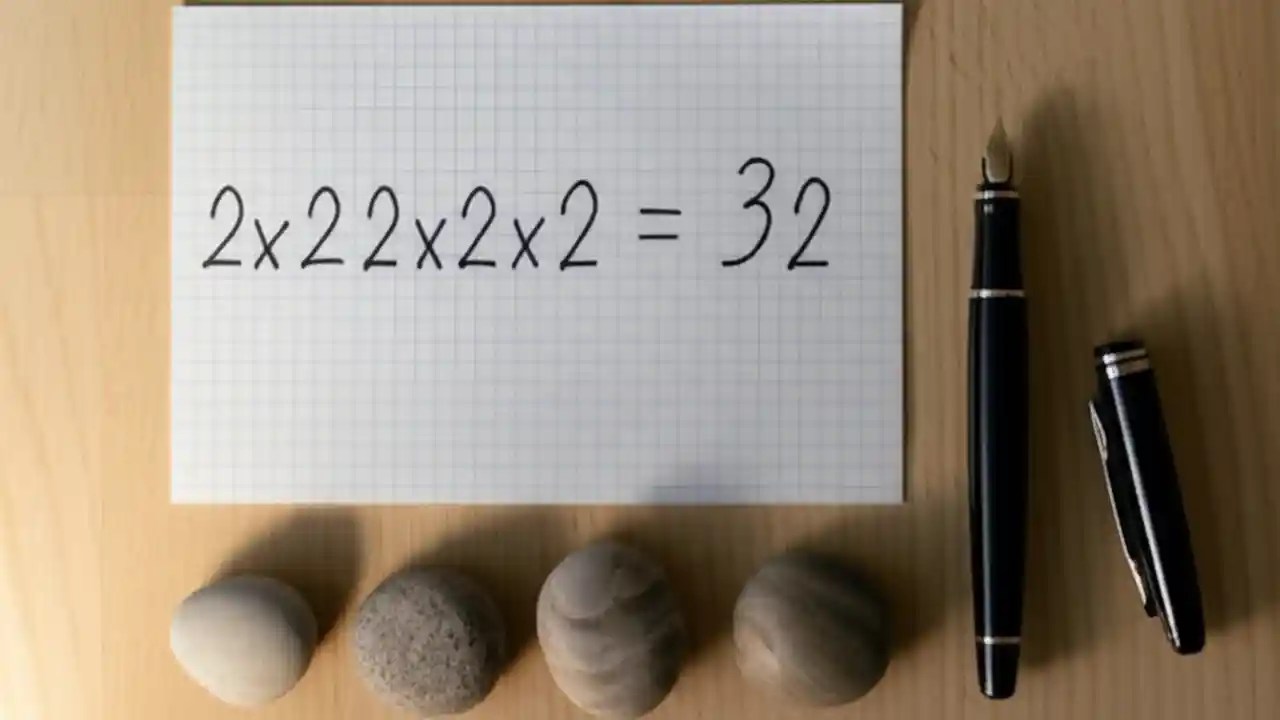 2x22x2x2 = 32